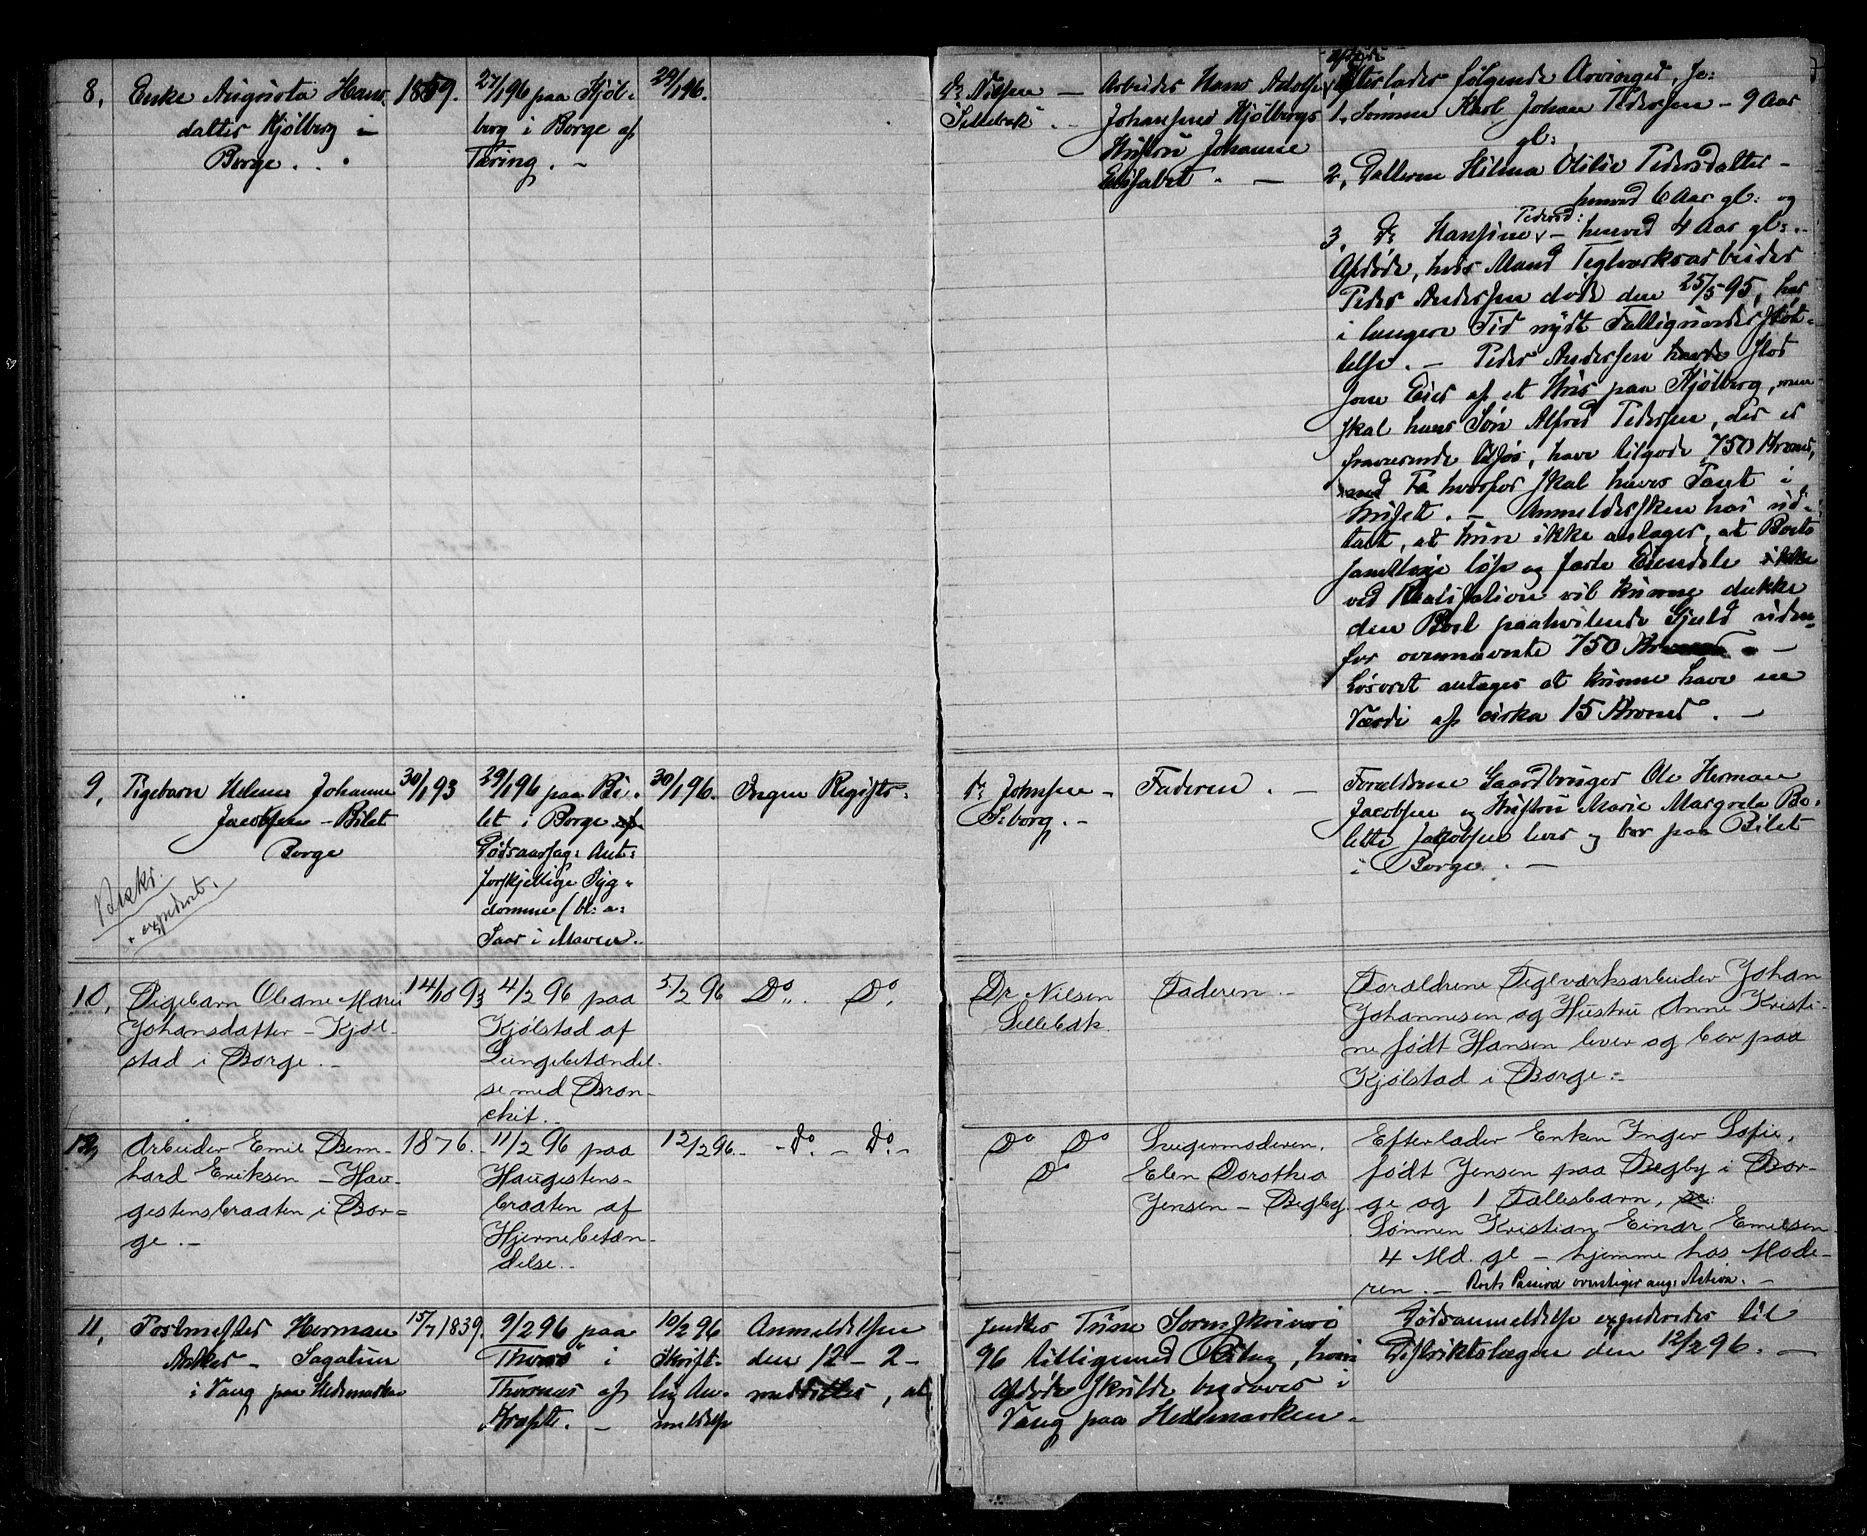 8, Enke Augusta Hans-
datter Kjølberg i
Borge.
1859.
27/1 96 paa Kjøl-
berg i Borge af
Tæring. -
29/1 96.
Dr Nilsen -
Sellebak.
Arbeider Hans Adolf
Johansens Kjølbergs
Hustru Johanne
Elisabet. -
Afdøde
efterlader følgende Arvinger, se:
1, Sønnen Karl Johan Pedersen - 9 Aar
gl:
2, Datteren Hilma Otilie Pedersdatter -
henved 6 Aar gl: og
Pedersd:
3, Do Hansine - henved 4 Aar gl:.-
Afdøde, hvis Mand Teglværksarbeider
Peder Andersen døde den 25/5 95, har
i længere Tid nydt Fattigunderstøt-
telse. - Peder Andersen havde staaet
som Eier af et Hus paa Kjølberg, men
skal hans Søn Alfred Pedersen, der er
fraværende tilsøs, have tilgode 750 Kroner,
hvorfor skal haves Pant i
Huset. - Anmeldersken har ud-
talt, at hun ikke antager, at Boets
samtlige løse og faste Eiendele ikke
ved Realisation vil kunne dække
den Boet paahvilende Gjæld uden-
for ovennævnte 750 Kroner -
Løsøret antages at kunne have en
Værdi af cirka 15 Kroner. -
9, Pigebarn Helene Johanne
Jacobsen - Bilet
Borge
Beskr.
expederet.
30/1 93
29/1 96 paa Bi-
let i Borge af
Dødsaarsag: Ant:
forskjellige Syg-
domme (bl: a:
Saar i Maven.
30/1 96.
Ingen Registr.
Dr Johnsen -
Ss:borg. -
Faderen. -
Forældrene Gaardbruger Ole Herman
Jacobsen og Hustru Marie Margrete Bo-
lette Jakobsen lever og bor paa Bilet
i Borge. -
10, Pigebarn Oleane Marie
Johansdatter - Kjøl-
stad i Borge. -
14/10 93
4/2 96 paa
Kjølstad af
Lungebetændel-
se med Bron-
chit. -
5/2 96
Do. Do.
Dr Nilsen
Sellebak.
Faderen. -
Forældrene Teglværksarbeider Johan
Johannesen og Hustru Anne Kristi-
ne født Hansen lever og bor paa
Kjølstad i Borge.-
12, Arbeider Emil Bern-
hard Eriksen - Hau-
gestensbraaten i Bor-
ge. -
1876.
11/2 96 paa
Haugestens-
braaten af
Hjernebetæn-
delse.-
12/2 96.
- Do. - Do. -
Do Do
Do
Svigermoderen,
Elen Dorothea
Jensen - Begby.
Efterlader Enken Inger Sofie,
født Jensen paa Begby i Bor-
ge og 1 Fællesbarn, se:
Sønnen Kristian Einar Emilsen
4 Md. gl - hjemme hos Mode-
ren. - Boets Passiva overstiger ang: Activa. -
11, Postmester Herman
Anker - Sagatun
i Vang paa Hedemarken
15/7 1839.
9/2 96 paa
Thorsø i
Thorsnes af
Kræft. -
10/2 96
Skrift-
lig An-
meldelse
Anmeldelsen
den 12 - 2 -
meddeltes, at
sendtes Tune Sorenskriveri
96 tilligemed , hvori
Afdøde skulde begraves i
Vang paa Hedemarken.
Dødsanmeldelse expederedes til
Distriktslægen den 12/2 96. -